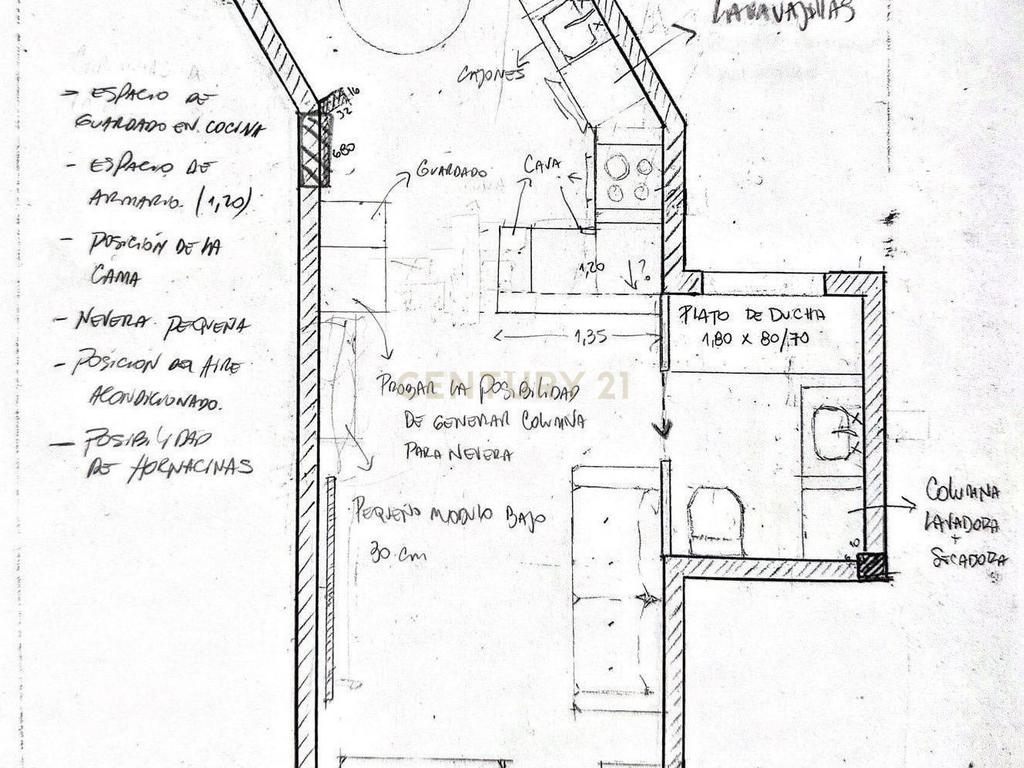 LAVAVAJILLAS
CAJONES
→ ESPACIO DE
GUARDADO EN COCINA
- ESPACIO DE
ARMARIO. (1,20)
- POSICIÓN DE LA
CAMA
- NEVERA PEQUEÑA
- POSICION DEL AIRE
ACONDICIONADO.
- POSIBILIDAD
DE HORNACINAS
680
GUARDADO
CAVA
1,20
?
1,35
PLATO DE DUCHA
1,80 x 80/70
CENTURY 21
PROBAR LA POSIBILIDAD
DE GENERAR COLUMNA
PARA NEVERA
PEQUEÑO MODULO BAJO
30 cm
COLUMNA
LAVADORA
+
SECADORA